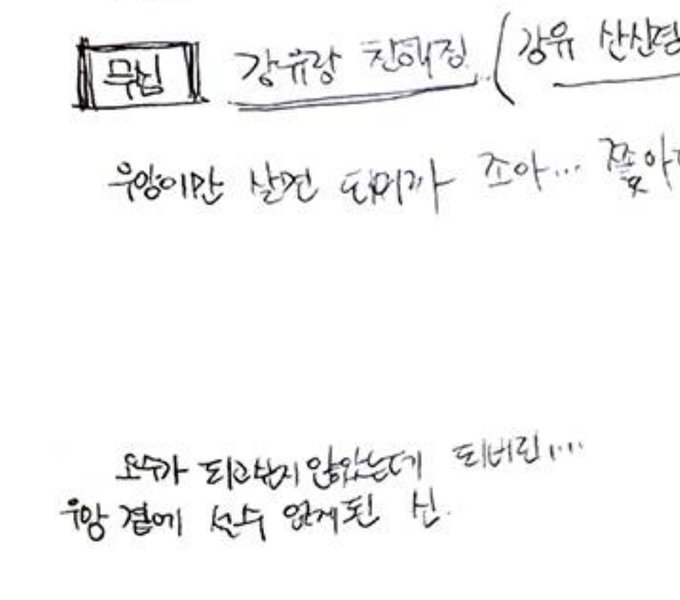 무님 강유랑 친해짐 (강유 산신령
우양이만 살면 되니까 조아... 쫓아
요수가 되고싶지 않았는데 되버린....
우양 곁에 설수 없게된 신.